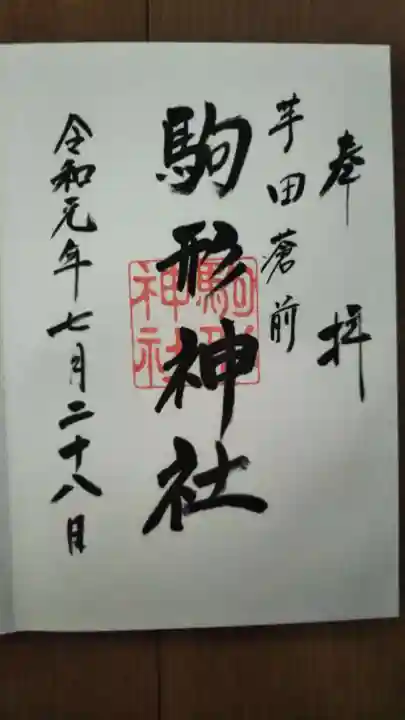 奉拝
芋田蒼前
駒形神社
駒形神社
令和元年七月二十八日